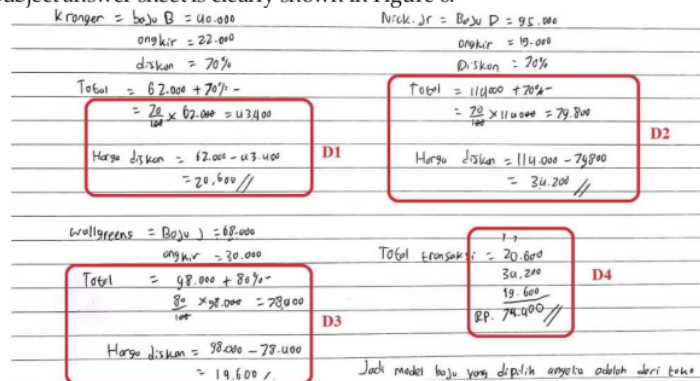 subject answer sheet is clearly shown in Figure 6.
Kronger = baju B = 40.000
ongkir = 22.000
diskon = 70%
Total = 62.000 + 70% -
= 70/100 x 62.000 = 43.400
Harga diskon = 62.000 - 43.400
= 20.600 //
D1
Nick. Jr = Baju D = 95.000
ongkir = 19.000
Diskon = 70%
Total = 114000 + 70% -
= 70/100 x 114000 = 79.800
Harga diskon = 114.000 - 79800
= 34.200 //
D2
wallgreens = Baju J = 68.000
ongkir = 30.000
Total = 98.000 + 80% -
80/100 x 98.000 = 78,400
Harga diskon = 98.000 - 78.400
= 19.600 /
D3
Total transaksi = 20.600
34.200
19.600
RP. 74.400 //
D4
Jadi model baju yang dipilih angelia adalah dari toko